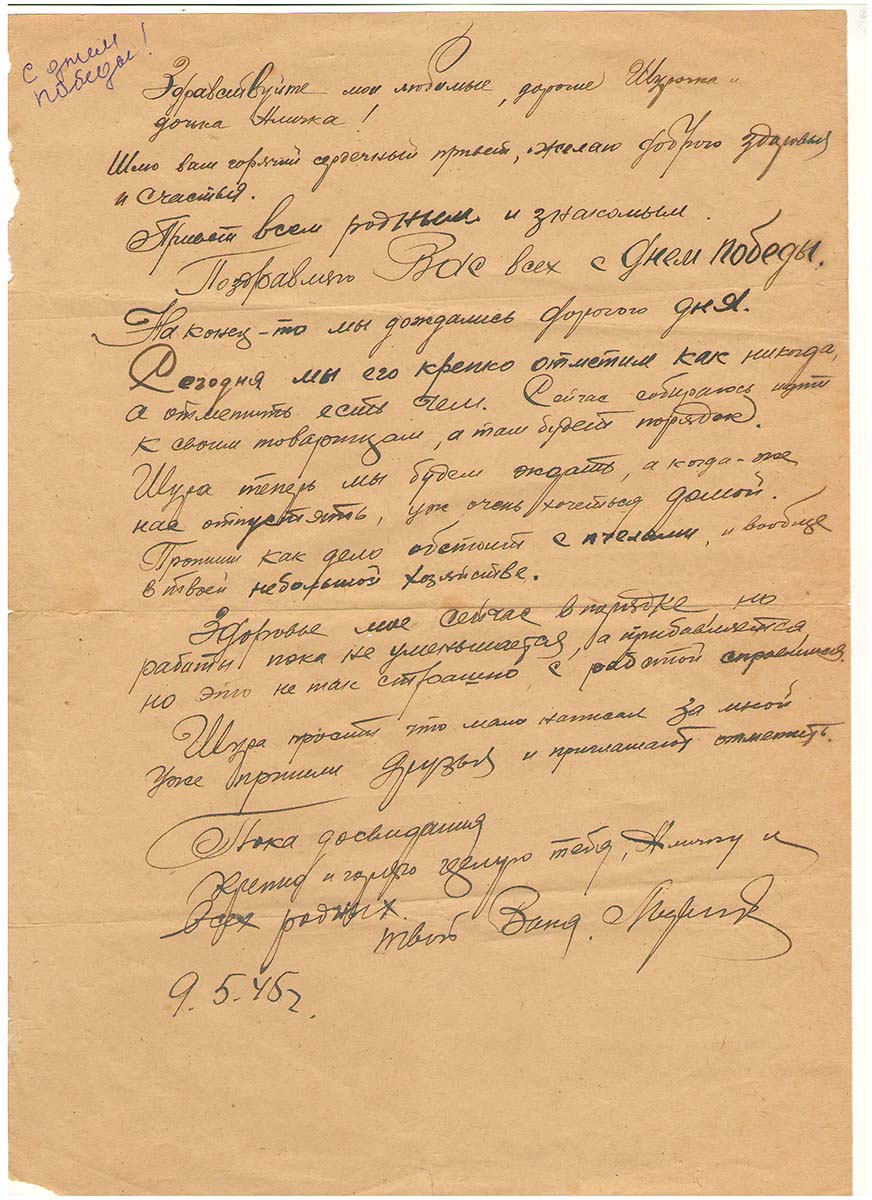 с днем
победы!
Здравствуйте мои любимые, дорогие Шурочка и
дочка Аличка!
Шлю вам горячий сердечный привет, желаю доброго здоровья
и счастья.
Привет всем родным и знакомым.
Поздравляю Вас всех с Днем победы.
Наконец-то мы дождались дорогого дня.
Сегодня мы его крепко отметим как никогда,
а отметить есть чем. Сейчас собираюсь идти
к своим товарищам, а там будет порядок.
Шура теперь мы будем ждать, а когда-же
нас отпустять, уж очень хочеться домой.
Пропиши как дело обстоит с пчелами, и вообще
в твоей небольшой хозяйстве.
Здоровье мое сейчас в порядке, но
работы пока не уменьшается, а прибавляется
но это не так страшно, с работой справимся.
Шура прости что мало написал за мной
уже пришли друзья и приглашают отметить.
Пока досвидания
Крепко и горячо целую тебя, Аличку и
всех родных.
твой Ваня.
9.5.45г.